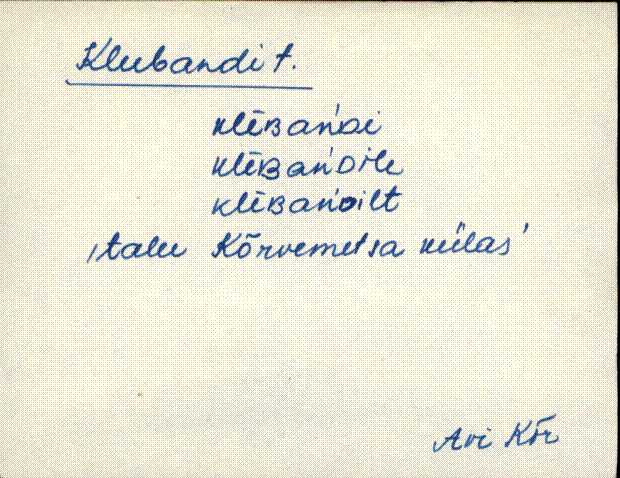 Klubandi t.
klēʙańᴅi
klēʙańᴅile
klēʙańᴅilt
'talu Kõrvemetsa külas'
Avi Kõr